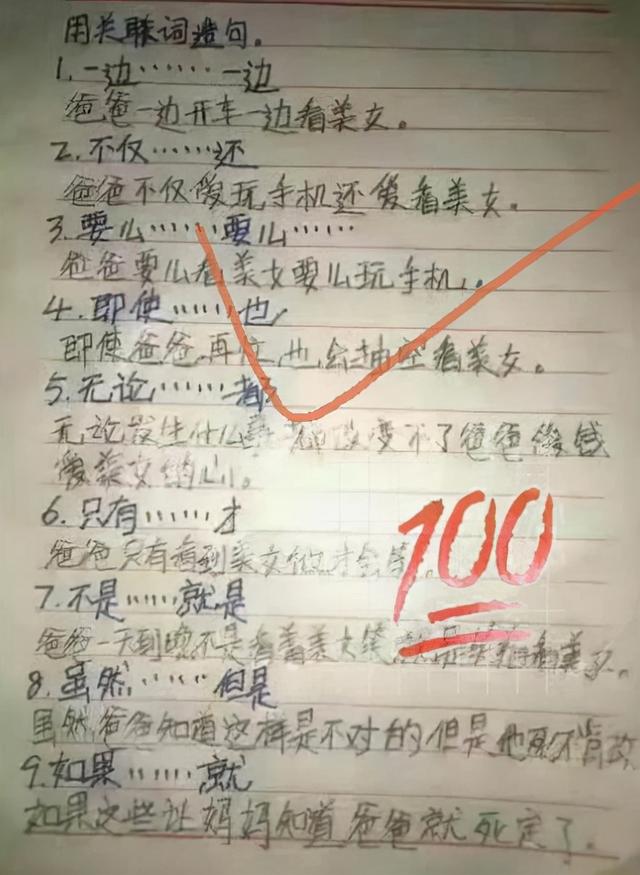 用关联词造句。
1.一边⋯⋯一边
爸爸一边开车一边看美女。
2.不仅⋯⋯还
爸爸不仅爱玩手机还爱看美女。
3.要么⋯⋯要么⋯⋯
爸爸要么看美女要么玩手机。
4.即使⋯⋯也
即使爸爸再忙,也会抽空看美女。
5.无论⋯⋯都
无论发生什么事都改变不了爸爸
爱美女的心。
6.只有⋯⋯才
爸爸只有看到美女 才会笑。
100
7.不是⋯⋯就是
爸爸一天到晚不是看着美女笑就是 看美女。
8.虽然⋯⋯但是
虽然爸爸知道这样是不对的但是他 不肯改
9.如果⋯⋯就
如果这些让妈妈知道爸爸就死定了。